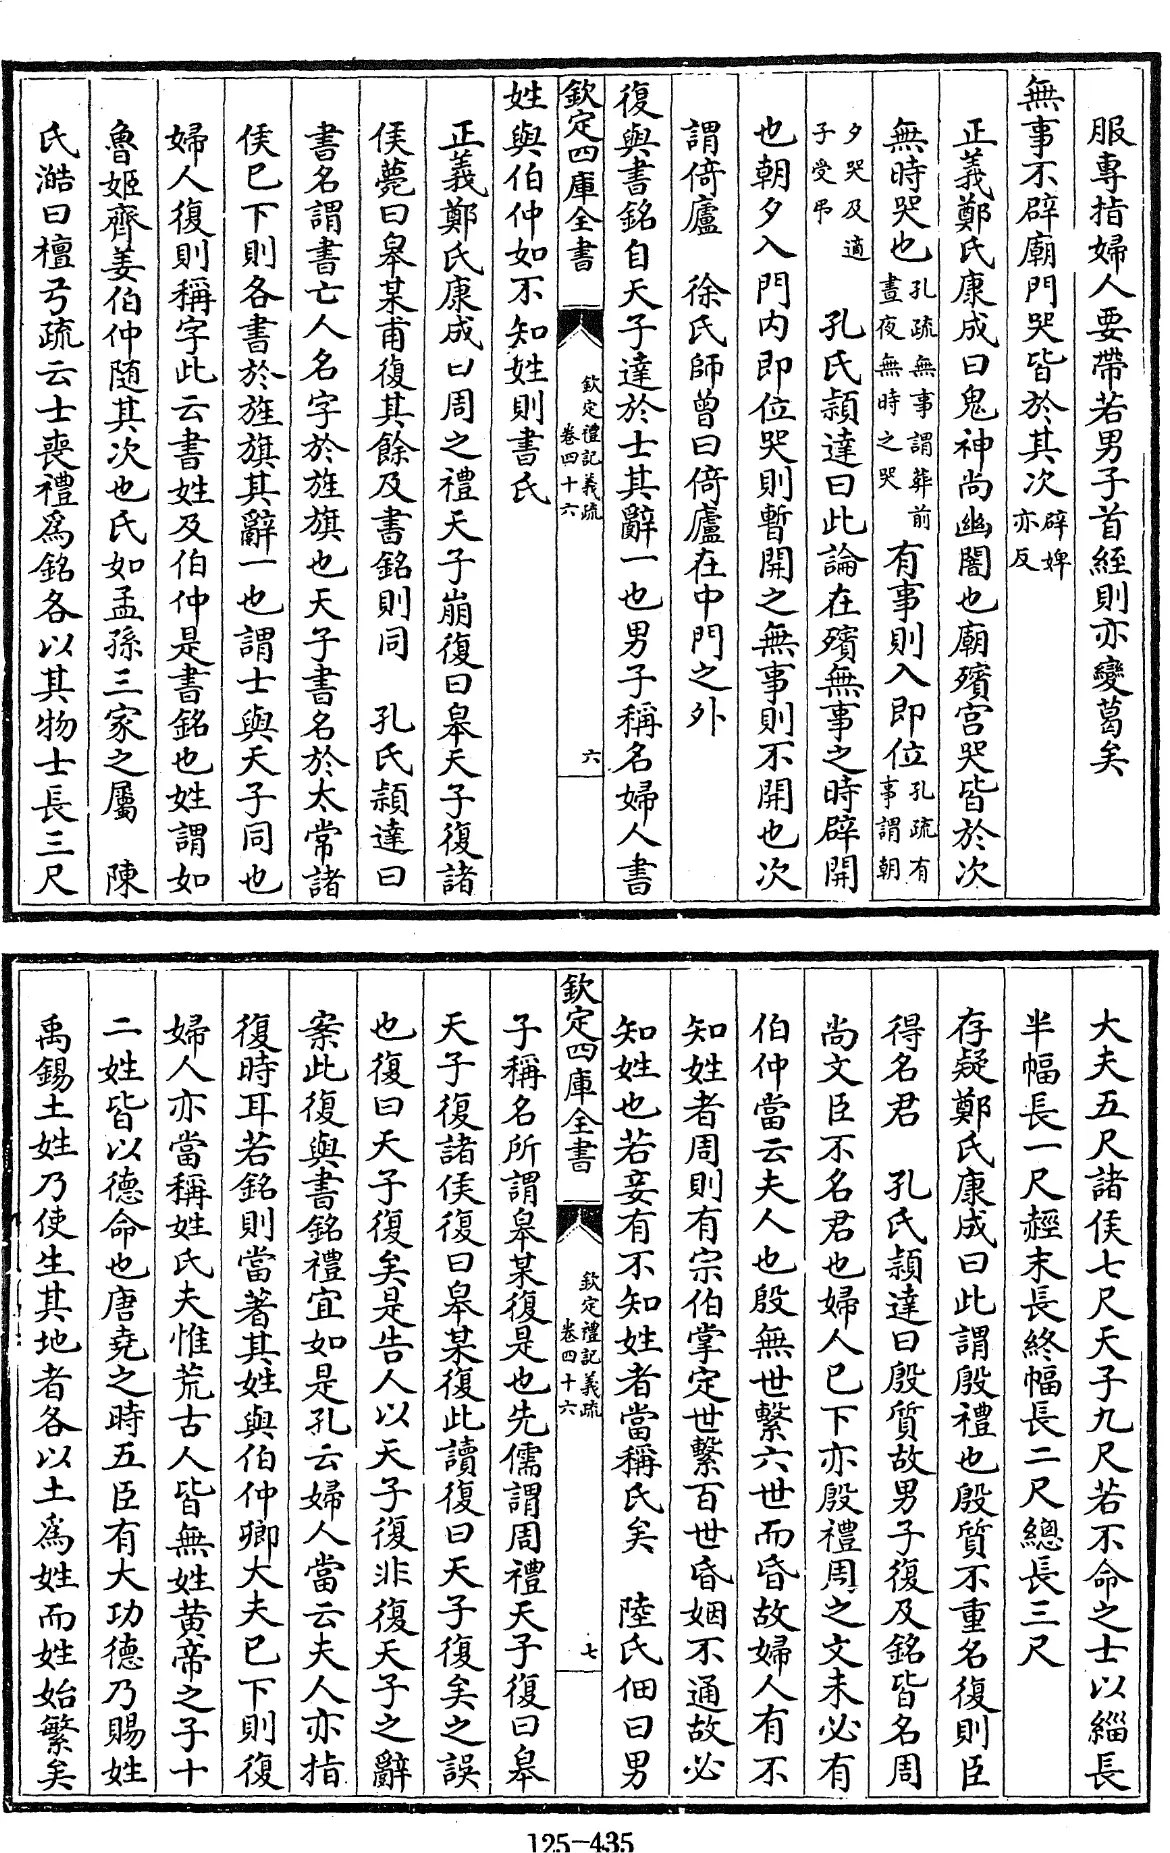 服專指婦人要帶若男子首絰則亦變葛矣
無事不辟廟門哭皆於其次辟婢亦反
正義鄭氏康成曰鬼神尚幽闇也廟殯宮哭皆於次
無時哭也孔疏無事謂葬前晝夜無時之哭有事則入即位孔疏有事謂朝
夕哭及適子受弔　孔氏穎達曰此論在殯無事之時辟開
也朝夕入門内即位哭則暫開之無事則不開也次
謂倚廬　徐氏師曾曰倚廬在中門之外
復與書銘自天子達於士其辭一也男子稱名婦人書
欽定四庫全書　欽定禮記義疏卷四十六　六
姓與伯仲如不知姓則書氏
正義鄭氏康成曰周之禮天子崩復曰皋天子復諸
侯薨曰皋某甫復其餘及書銘則同　孔氏穎達曰
書名謂書亡人名字於旌旗也天子書名於太常諸
侯已下則各書於旌旗其辭一也謂士與天子同也
婦人復則稱字此云書姓及伯仲是書銘也姓謂如
魯姬齊姜伯仲隨其次也氏如孟孫三家之屬　陳
氏澔曰檀弓疏云士喪禮爲銘各以其物士長三尺
大夫五尺諸侯七尺天子九尺若不命之士以緇長
半幅長一尺經末長終幅長二尺總長三尺
存疑鄭氏康成曰此謂殷禮也殷質不重名復則臣
得名君　孔氏穎達曰殷質故男子復及銘皆名周
尚文臣不名君也婦人已下亦殷禮周之文未必有
伯仲當云夫人也殷無世繫六世而昏故婦人有不
知姓者周則有宗伯掌定世繫百世昏姻不通故必
知姓也若妾有不知姓者當稱氏矣　陸氏佃曰男
欽定四庫全書　欽定禮記義疏卷四十六　七
子稱名所謂皋某復是也先儒謂周禮天子復曰皋
天子復諸侯復曰皋某復此讀復曰天子復矣之誤
也復曰天子復矣是告人以天子復非復天子之辭
案此復與書銘禮宜如是孔云婦人當云夫人亦指
復時耳若銘則當著其姓與伯仲卿大夫已下則復
婦人亦當稱姓氏夫惟荒古人皆無姓黃帝之子十
二姓皆以德命也唐堯之時五臣有大功德乃賜姓
禹錫土姓乃使生其地者各以土爲姓而姓始繁矣
125-435